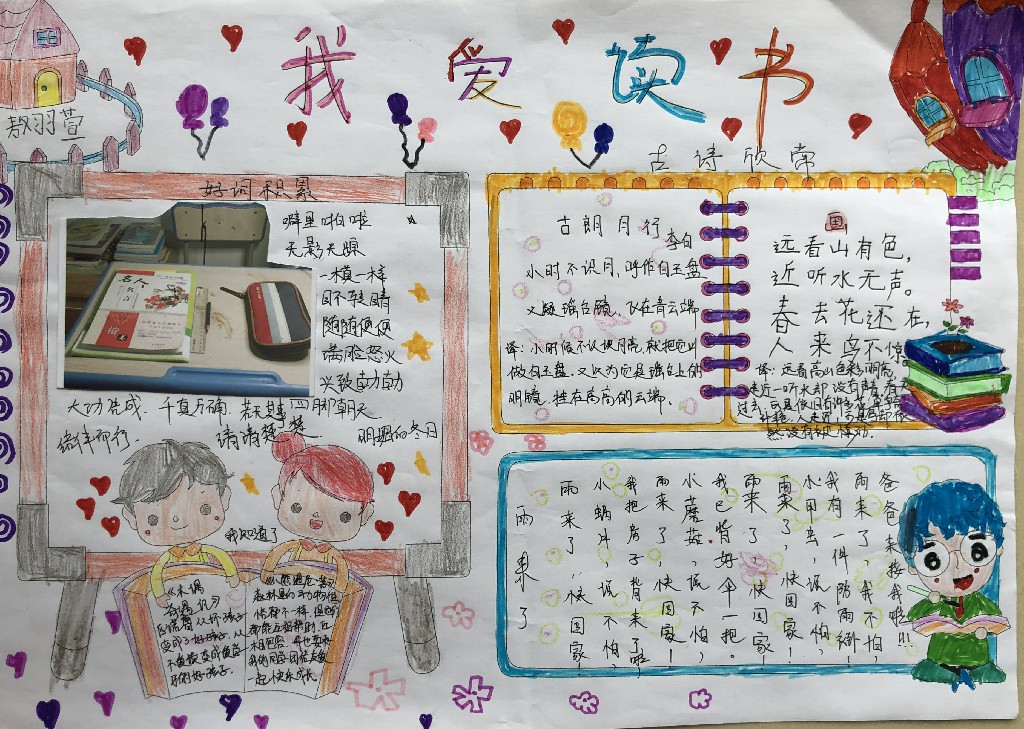 我爱读书
敖羽萱
好词积累
噼里啪啦
无影无踪
一模一样
目不转睛
随随便便
满脸怒火
兴致勃勃
大功告成 千真万确 若无其事 四脚朝天
结伴而行 清清楚楚 明媚的冬日
名人
名言
楷书
我知道了
《木偶
奇遇记》
变成了好孩子,从
一起快乐成长。
古诗欣赏
古朗月行
李白
小时不识月,呼作白玉盘
又疑瑶台镜,飞在青云端
译:小时候不认识月亮,就把它叫
做白玉盘。又以为它是瑶台上的
明镜,挂在高高的云端。
画
远看山有色,
近听水无声。
春去花还在,
人来鸟不惊
译:远看高山色彩明亮,
走近一听水却没有声音,春天
雨来了
雨来了,快回家,
小蜗牛,说不怕,
我把房子背来了啦
雨来了,快回家!
小蘑菇,说不怕,
我已背好伞一把。
雨来了,快回家!
小田去,说不怕,
我有一件防雨绸!
雨来了,我不怕,
爸爸来接我啦!!!